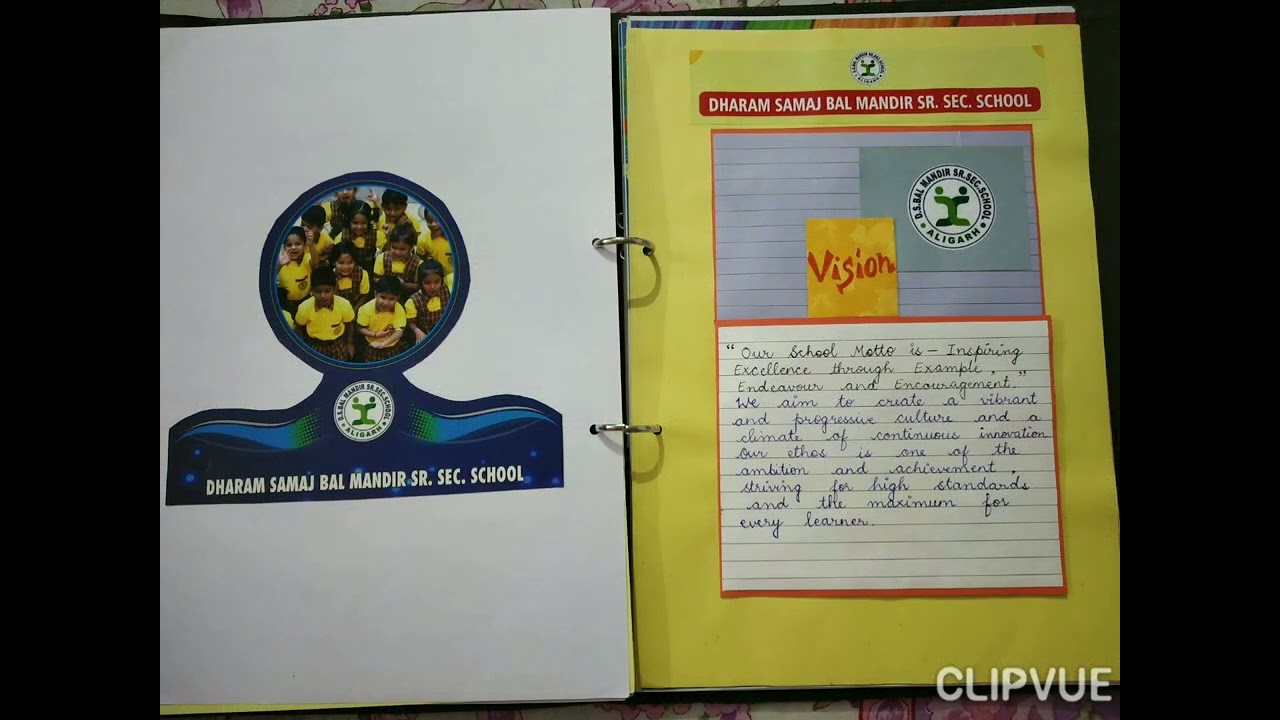 D.S.BAL MANDIR SR.SEC.SCHOOL
ALIGARH
DHARAM SAMAJ BAL MANDIR SR. SEC. SCHOOL
D.S.BAL MANDIR SR.SEC.SCHOOL
ALIGARH
DHARAM SAMAJ BAL MANDIR SR. SEC. SCHOOL
D.S.BAL MANDIR SR.SEC.SCHOOL
ALIGARH
Vision
“ Our School Motto is – Inspiring
Excellence through Example,
Endeavour and Encouragement.”
We aim to create a vibrant
and progressive culture and a
climate of continuous innovation
Our ethos is one of the
ambition and achievement,
striving for high standards
and the maximum for
every learner.
CLIPVUE